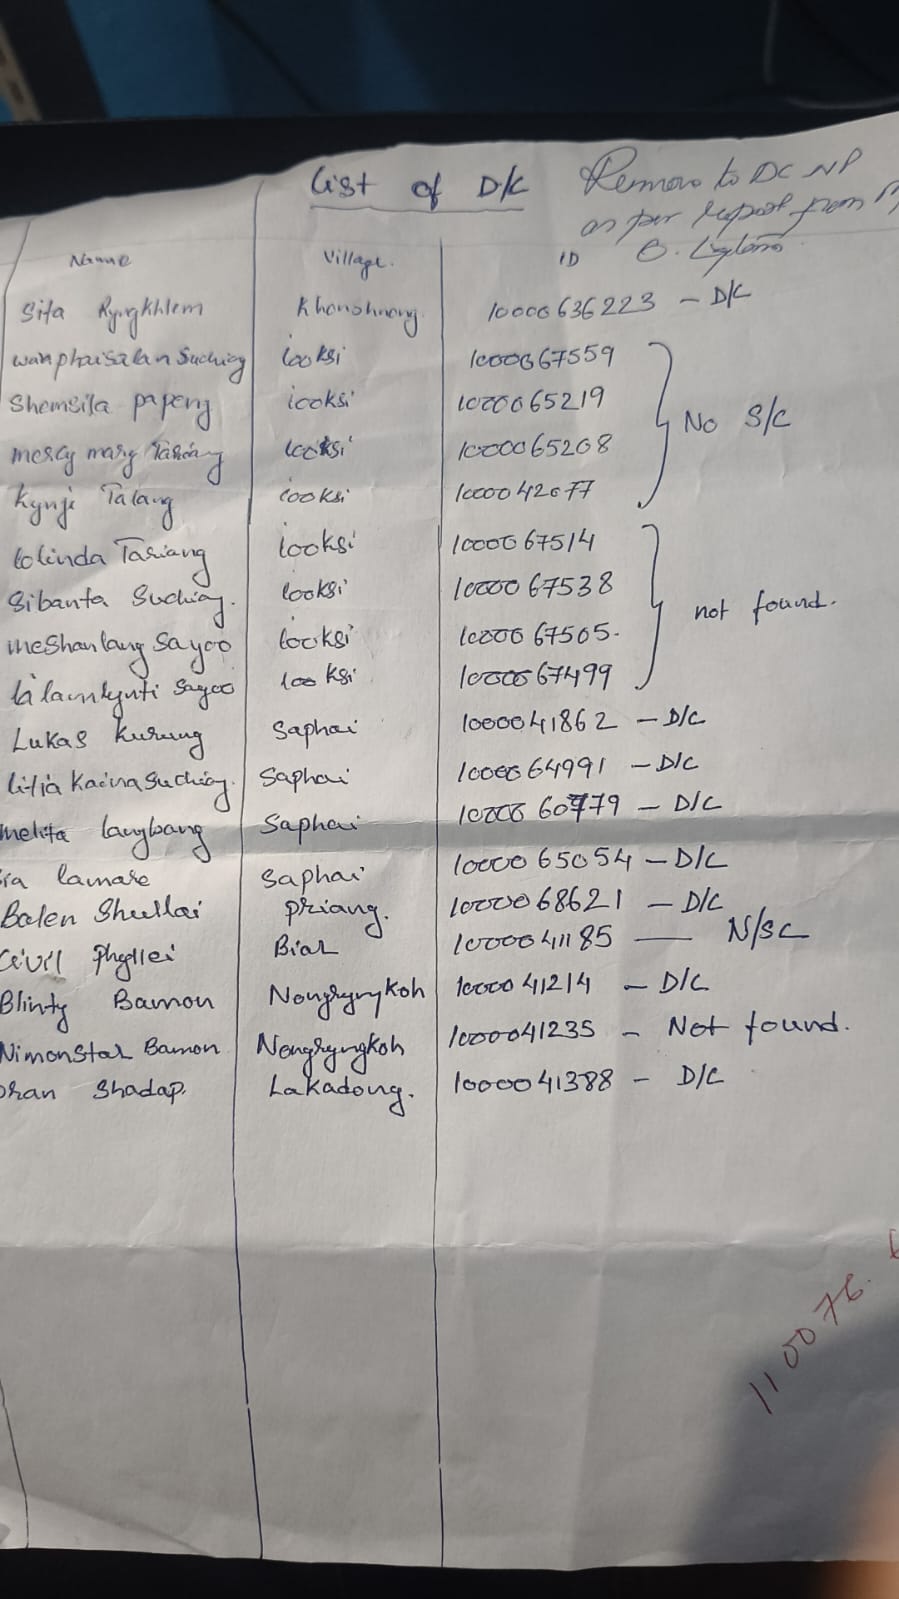 List of D/C
Remove to DC NP
as per report from
Name Village. ID
Sita Ryngkhlem Khonshnong 10000636223 - D/C
wanphaisalan Suchiang looksi 1000067559
Shemsila papeng iooksi 1000065219
mercy mary Tariang looksi 1000065208 No S/C
Kynje Talang iooksi 1000042077
lolinda Tariang looksi 1000067514
Sibanta Suchiang. looksi 1000067538
meShanlang Sayoo looksi 1000067505. not found.
Sayoo looksi 1000067499
Lukas Kurung Saphai 1000041862 - D/C
Suchiang. Saphai 1000064991 - D/C
melita langbang Saphai 1000060779 - D/C
lamare Saphai 1000065054 - D/C
Balen Shullai priang. 1000068621 - D/C
Civil Phyllei Biar 1000041185 - N/SC
Blinty Bamon Nongryngkoh 1000041214 - D/C
Nimonstar Bamon Nongryngkoh 1000041235 - Not found.
Shadap. Lakadong. 1000041388 - D/C
110076.